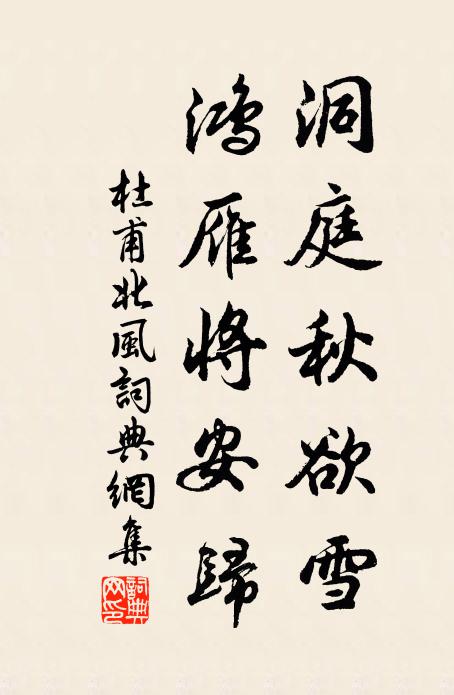 洞庭秋欲雪
鸿雁将安歸
杜甫北風詞典網集
詞典网印